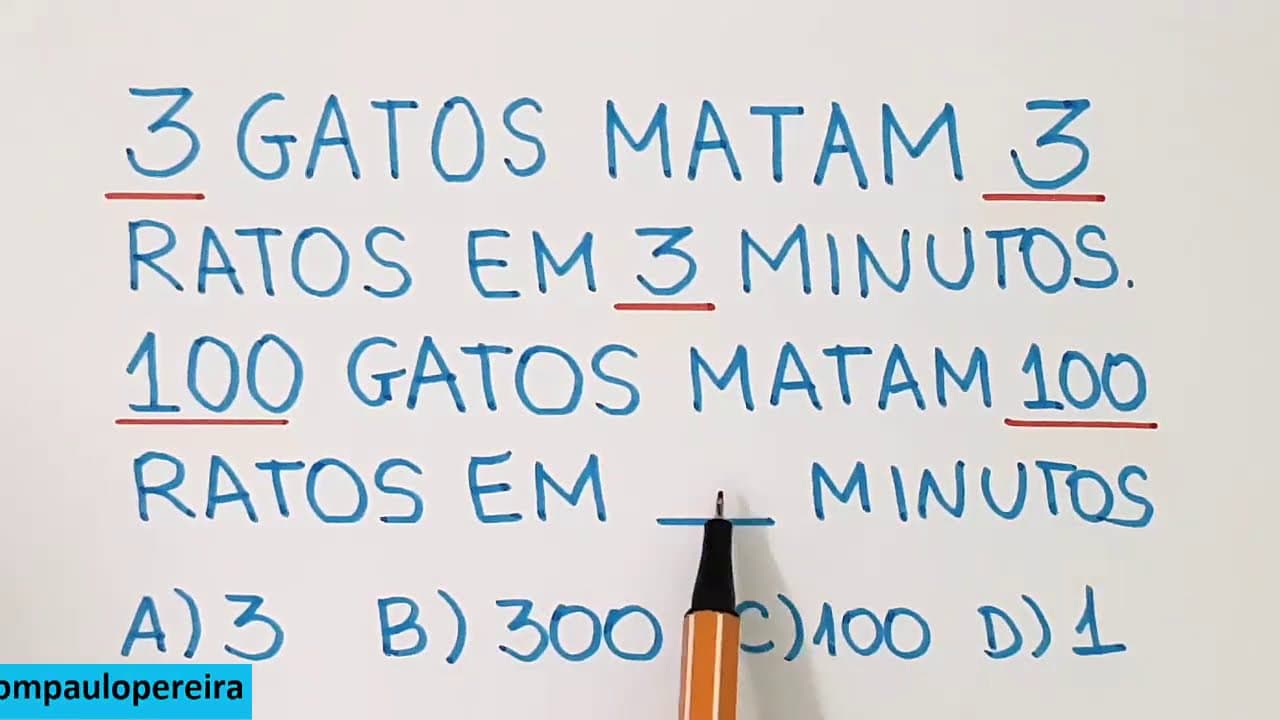 3 GATOS MATAM 3
RATOS EM 3 MINUTOS.
100 GATOS MATAM 100
RATOS EM ___ MINUTOS
A) 3 B) 300 C) 100 D) 1
ompaulopereira